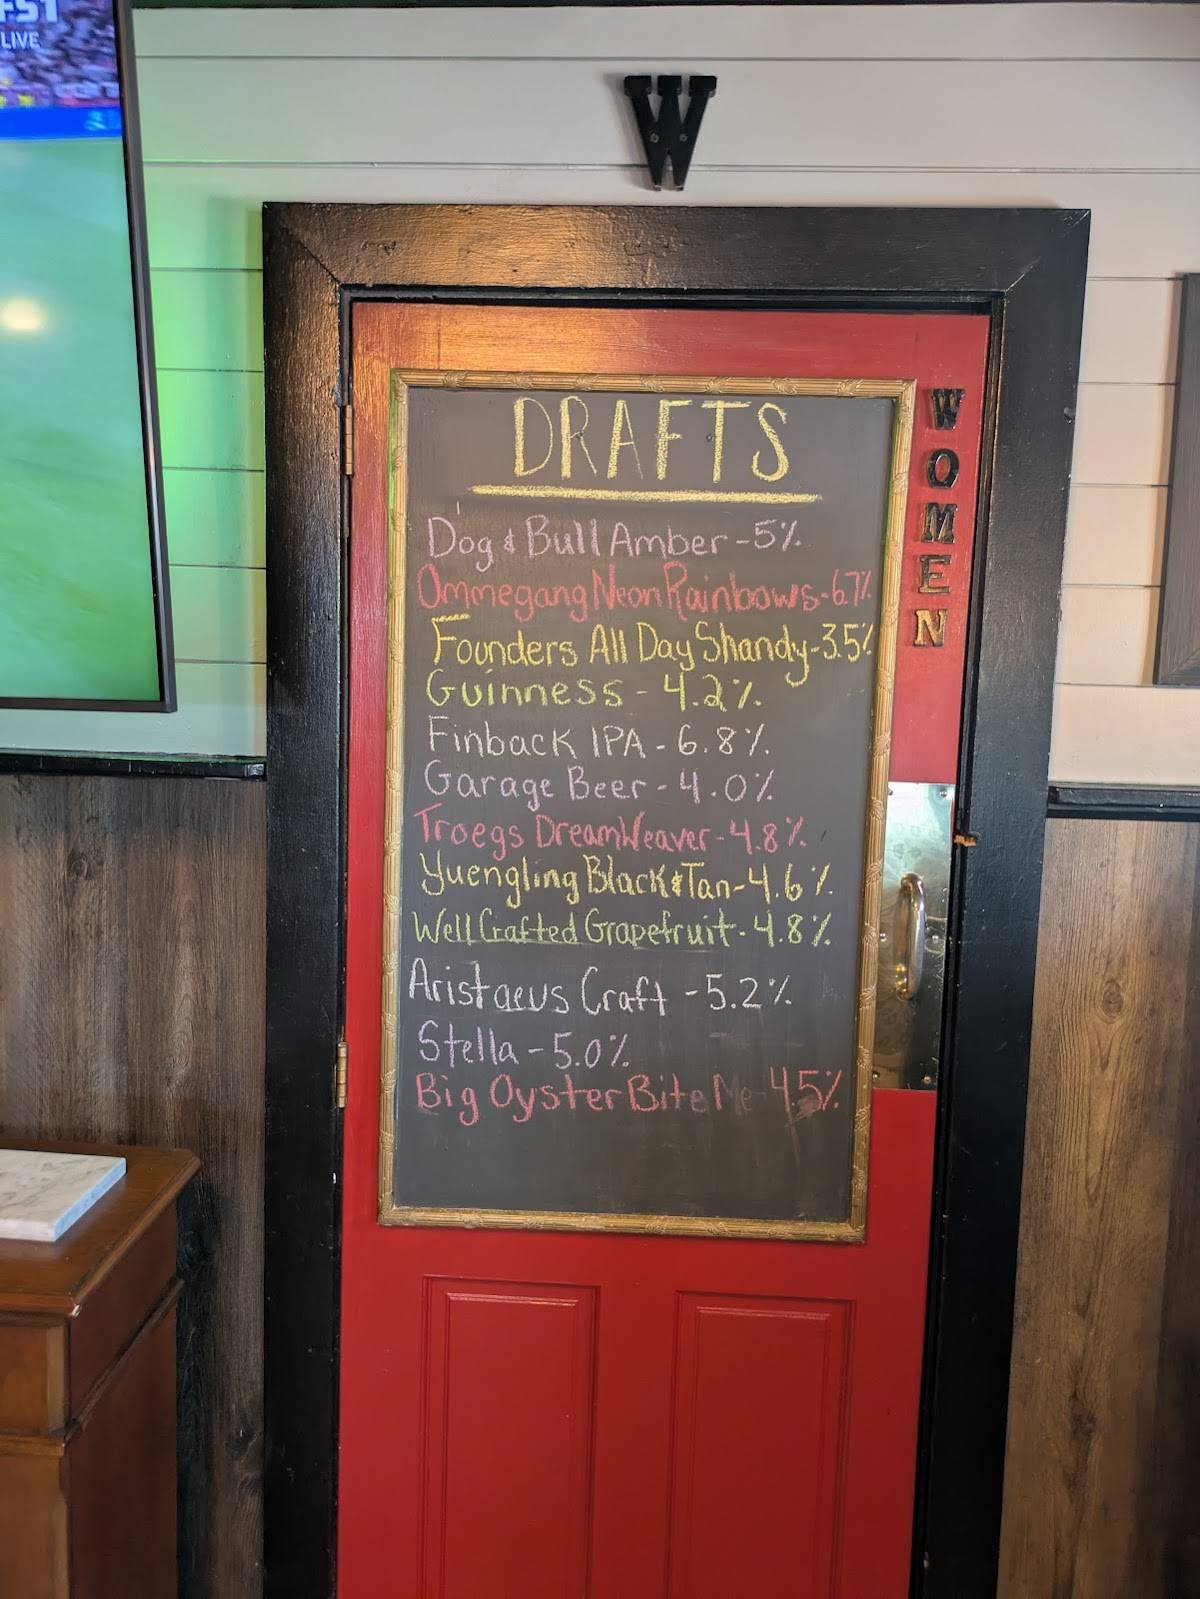 LIVE
W
WOMEN
DRAFTS
Dog & Bull Amber - 5%
Ommegang Neon Rainbows - 6.7%
Founders All Day Shandy - 3.5%
Guinness - 4.2%
Finback IPA - 6.8%
Garage Beer - 4.0%
Troegs DreamWeaver - 4.8%
Yuengling Black & Tan - 4.6%
Well Crafted Grapefruit - 4.8%
Aristaeus Craft - 5.2%
Stella - 5.0%
Big Oyster Bite Me - 4.5%